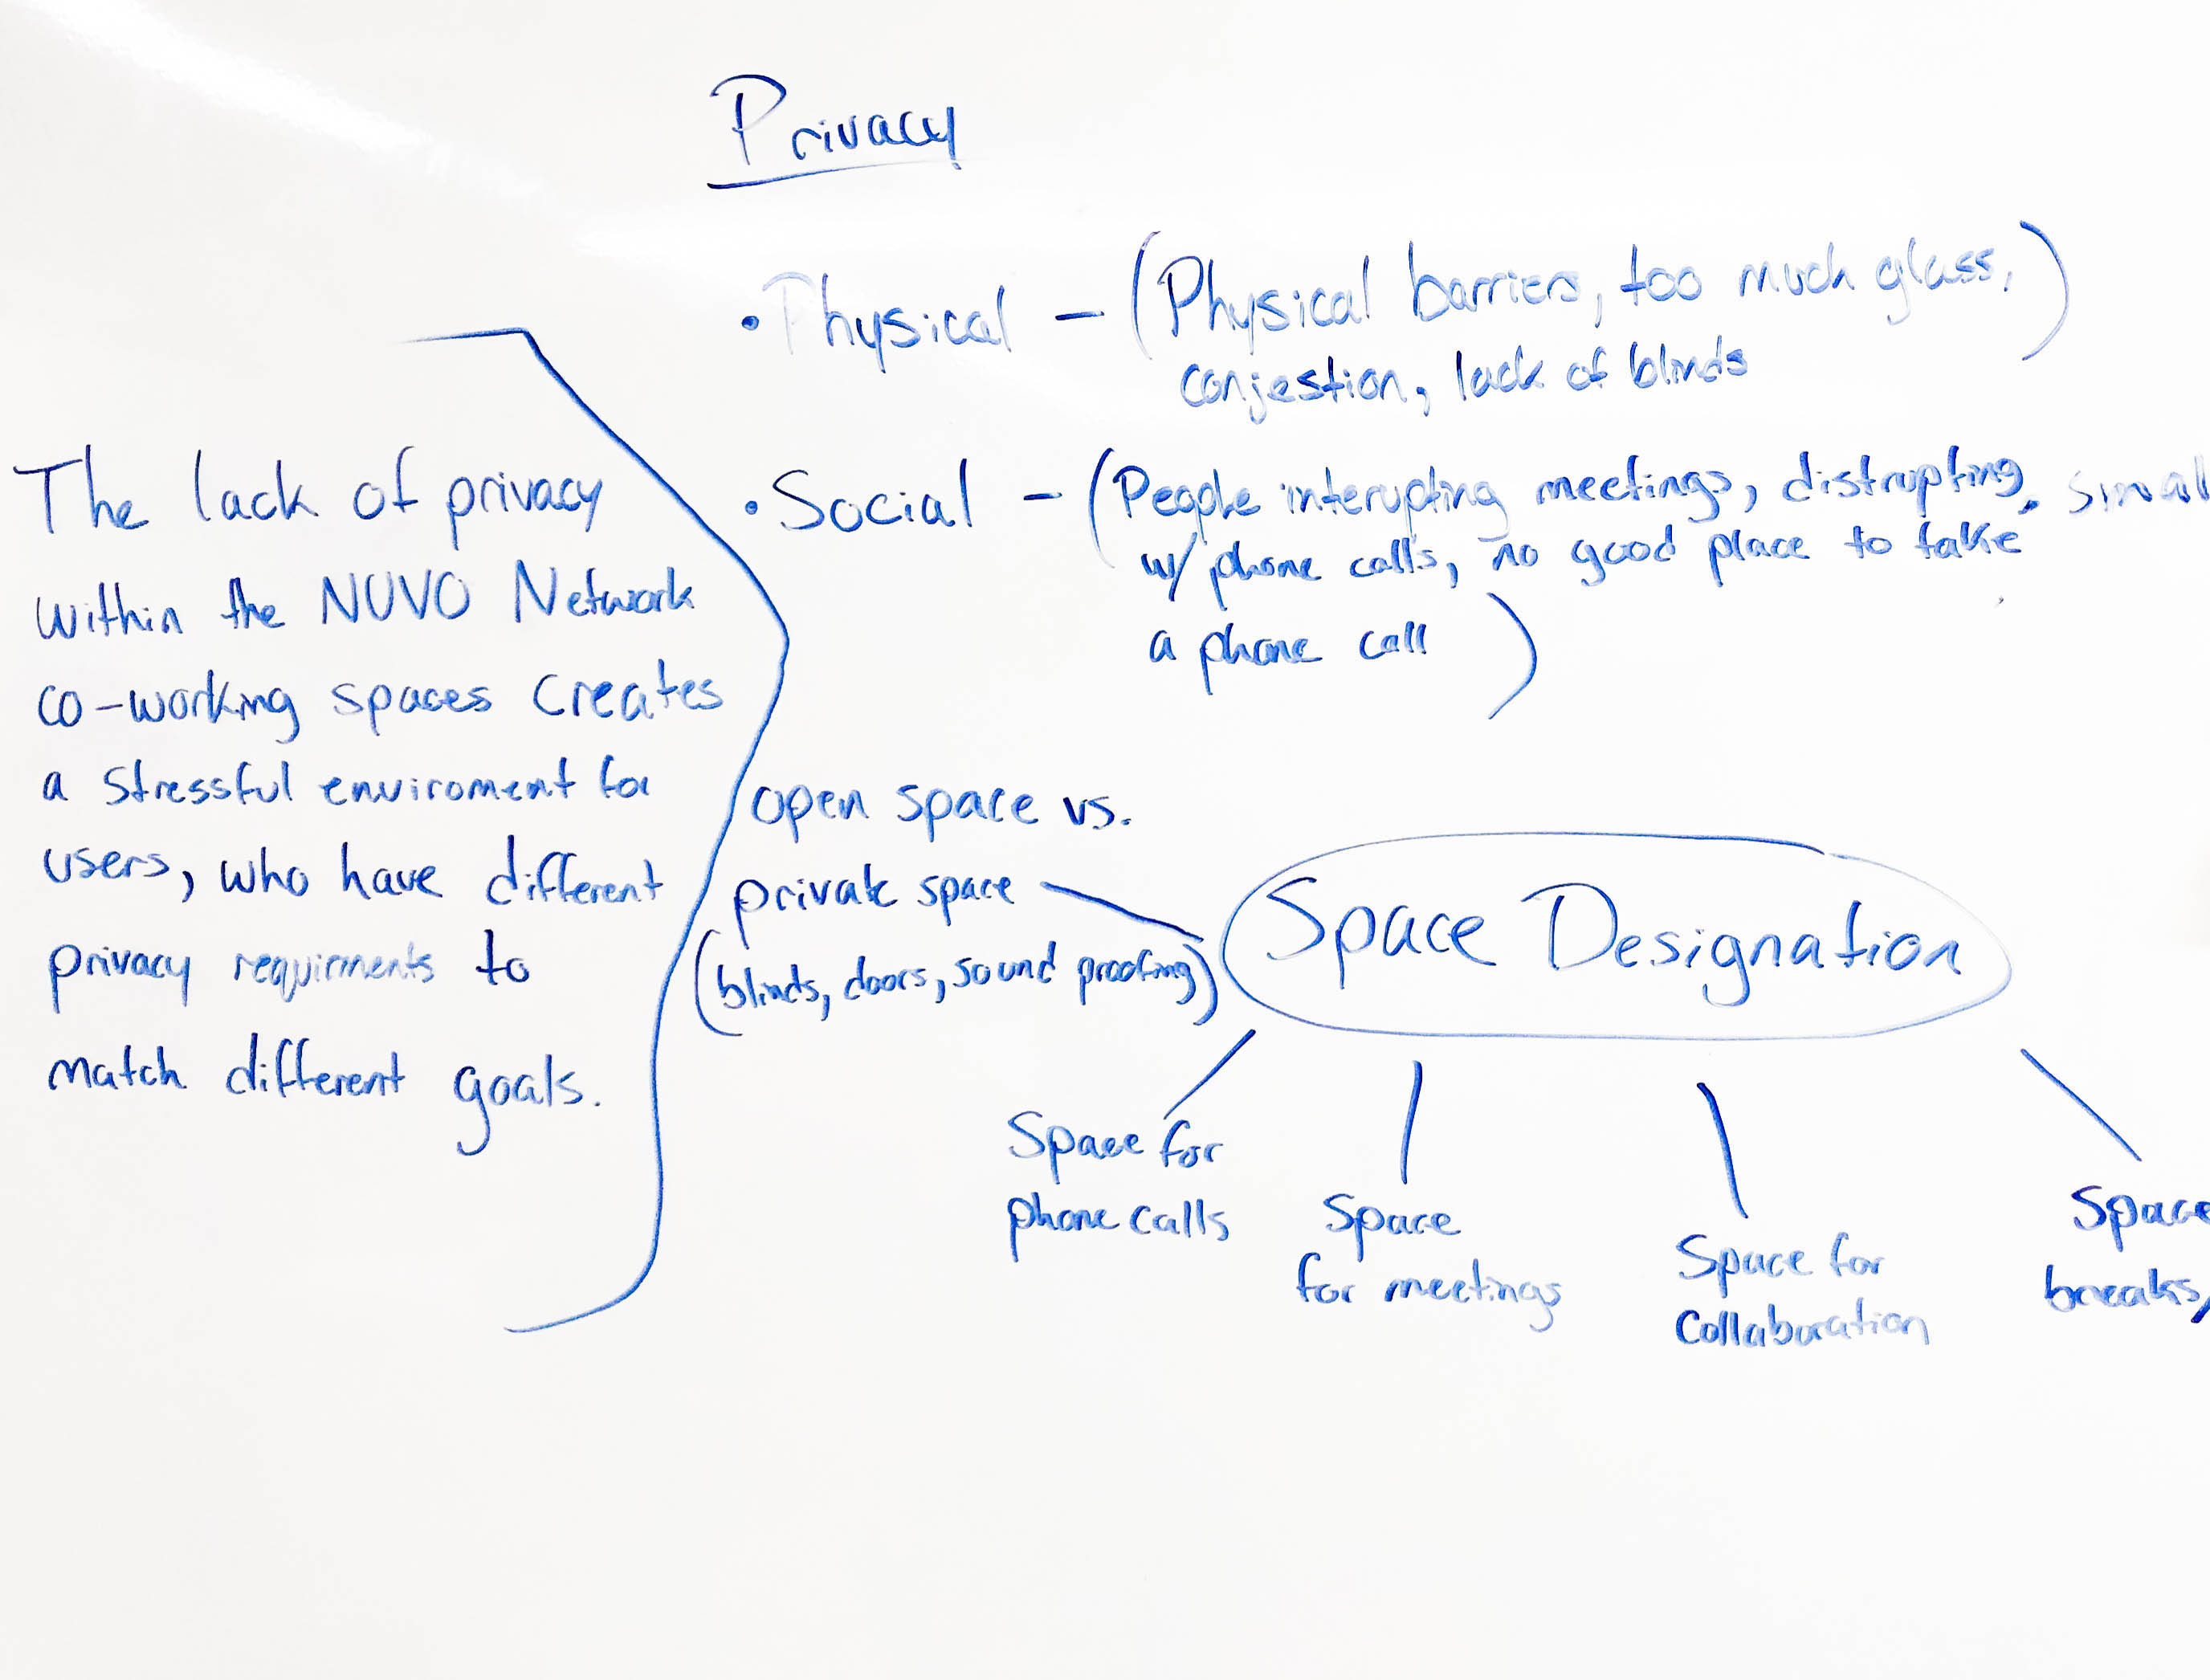 Privacy
• Physical – (Physical barriers, too much glass,)
conjestion, lack of blinds
• Social – (People interupting meetings, distrupting,
w/ phone calls, no good place to take
a phone call)
The lack of privacy
within the NUVO Network
co-working spaces creates
a stressful enviroment for
users, who have different
privacy requirments to
match different goals.
open space vs.
private space
(blinds, doors, sound proofing)
Space Designation
Space for
phone calls
Space
for meetings
Space for
Collaboration
Space
breaks,